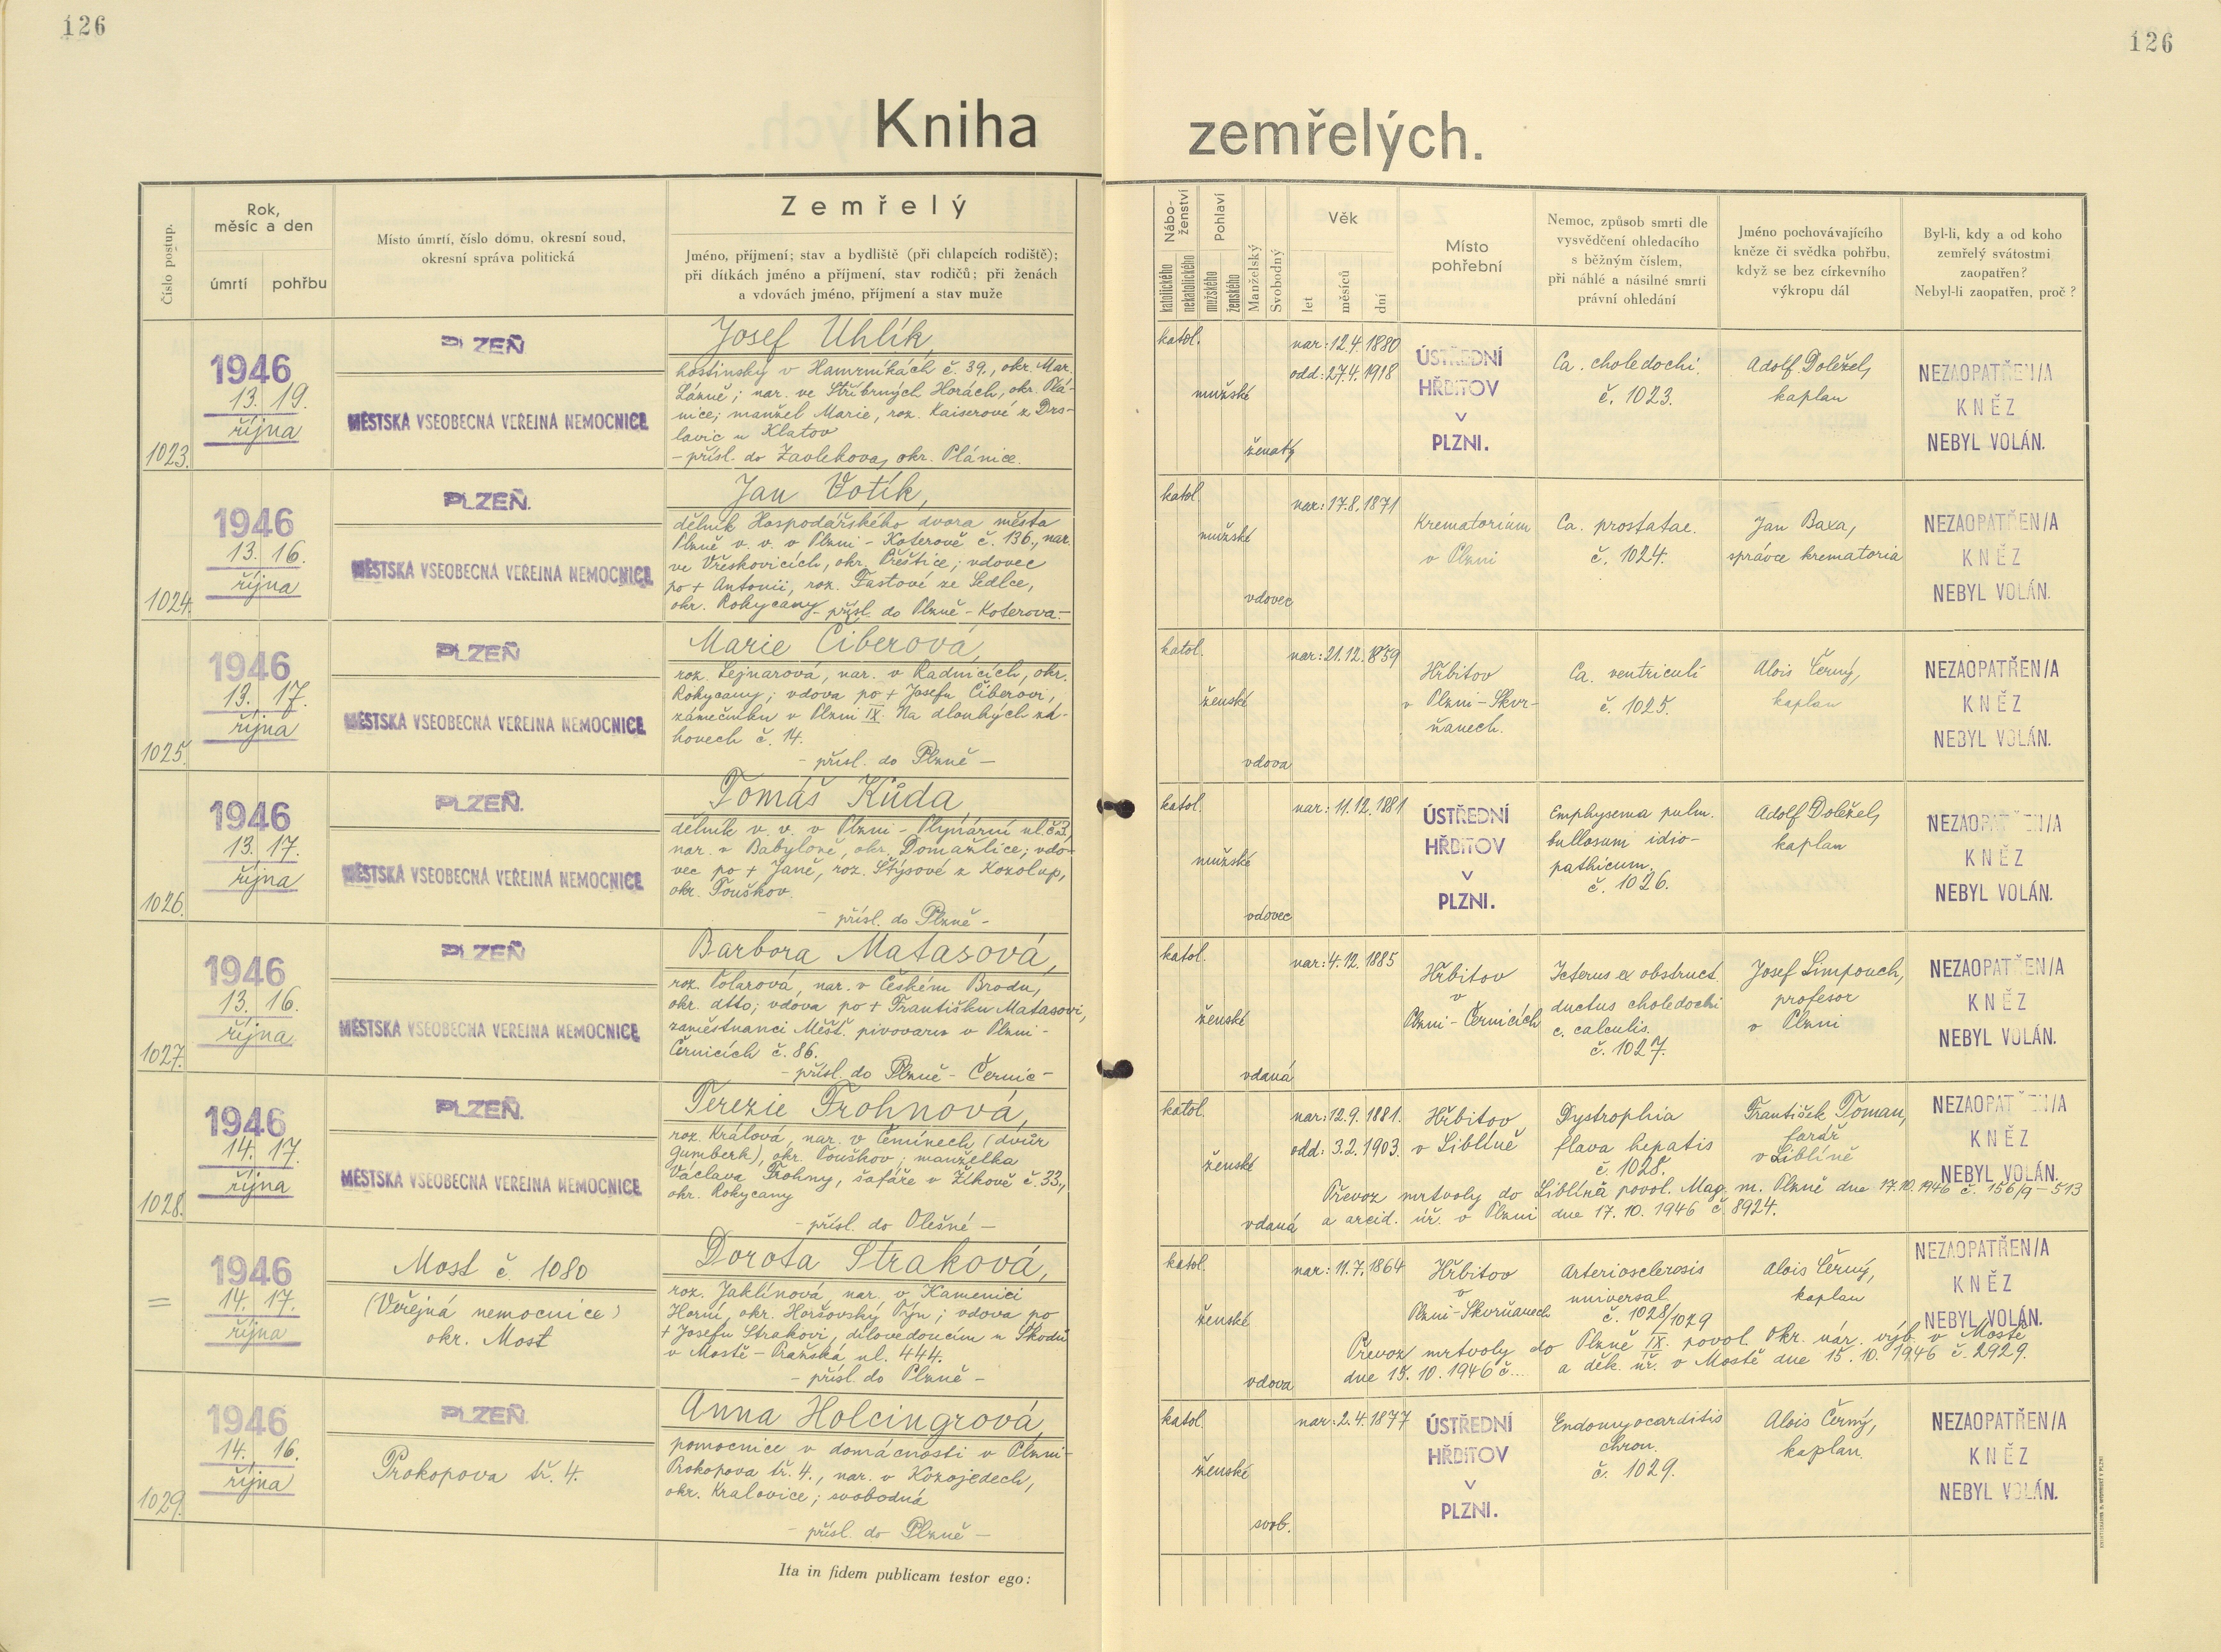 126
126
Kniha zemřelých.
Číslo postup.
Rok,
měsíc a den
úmrtí
pohřbu
Místo úmrtí, číslo domu, okresní soud,
okresní správa politická
Zemřelý
Jméno, příjmení; stav a bydliště (při chlapcích rodiště);
při dítkách jméno a příjmení, stav rodičů; při ženách
a vdovách jméno, příjmení a stav muže
Nábo-
ženství
katolického
nekatolického
Pohlaví
mužského
ženského
Manželský
Svobodný
Věk
let
měsíců
dní
Místo
pohřební
Nemoc, způsob smrti dle
vysvědčení ohledacího
s běžným číslem,
při náhlé a násilné smrti
právní ohledání
Jméno pochovávajícího
kněze či svědka pohřbu,
když se bez církevního
výkropu dál
Byl-li, kdy a od koho
zemřelý svátostmi
zaopatřen?
Nebyl-li zaopatřen, proč?
1023.
1946
13. 19.
října
PLZEŇ
MĚSTSKÁ VŠEOBECNÁ VEŘEJNÁ NEMOCNICE
Josef Uhlík,
hostinský v Hamrníkách č. 39., okr. Mar.
Lázně; nar. ve Stříbrných Horách, okr. Plá-
nice; manžel Marie, roz. Kaiserové z Drs-
lavic u Klatov
- přísl. do Zavlekova, okr. Plánice.
katol.
mužské
ženatý
nar: 12.4.1880
odd: 27.4.1918
ÚSTŘEDNÍ
HŘBITOV
V
PLZNI.
Ca. choledochi.
č. 1023.
Adolf Doležel,
kaplan
NEZAOPATŘEN/A
KNĚZ
NEBYL VOLÁN.
1024.
1946
13. 16.
října
PLZEŇ.
MĚSTSKÁ VŠEOBECNÁ VEŘEJNÁ NEMOCNICE
Jan Votík,
dělník Hospodářského dvora města
Plzně v. v. v Plzni - Koterově č. 136., nar.
ve Vřeskovicích, okr. Přeštice; vdovec
po + Antonii, roz. Fastové ze Sedlce,
okr. Rokycany - přísl. do Plzně - Koterova -
katol.
mužské
vdovec
nar: 17.8.1871
Krematorium
v Plzni
Ca. prostatae.
č. 1024.
Jan Baxa,
správce krematoria
NEZAOPATŘEN/A
KNĚZ
NEBYL VOLÁN.
1025.
1946
13. 17.
října
PLZEŇ
MĚSTSKÁ VŠEOBECNÁ VEŘEJNÁ NEMOCNICE
Marie Čiberová,
roz. Lejnarová, nar. v Radnicích, okr.
Rokycany; vdova po + Josefu Čiberovi,
zámečníku v Plzni IX. Na dlouhých zá-
honech č. 14.
- přísl. do Plzně -
katol.
ženské
vdova
nar: 21.12.1859
Hřbitov
v Plzni - Skvr-
ňanech.
Ca. ventriculi
č. 1025.
Alois Černý,
kaplan
NEZAOPATŘEN/A
KNĚZ
NEBYL VOLÁN.
1026.
1946
13. 17.
října
PLZEŇ.
MĚSTSKÁ VŠEOBECNÁ VEŘEJNÁ NEMOCNICE
Tomáš Kůda
dělník v. v. v Plzni - Plynární ul. č. 3,
nar. v Babyloně, okr. Domažlice; vdo-
vec po + Janě, roz. Štýsové z Kozolup,
okr. Touškov.
- přísl. do Plzně -
katol.
mužské
vdovec
nar: 11.12.1881
ÚSTŘEDNÍ
HŘBITOV
V
PLZNI.
Emphysema pulm.
bullosum idio-
pathicum.
č. 1026.
Adolf Doležel,
kaplan
NEZAOPATŘEN/A
KNĚZ
NEBYL VOLÁN.
1027.
1946
13. 16.
října
PLZEŇ
MĚSTSKÁ VŠEOBECNÁ VEŘEJNÁ NEMOCNICE
Barbora Matasová,
roz. Tolarová, nar. v Českém Brodu,
okr. dtto; vdova po + Františku Matasovi,
zaměstnanci Měšť. pivovaru v Plzni -
Černicích č. 86.
- přísl. do Plzně - Černic -
katol.
ženské
vdaná
nar: 4.12.1885
Hřbitov
v
Plzni - Černicích
Icterus ex obstruct.
ductus choledochi
c. calculis.
č. 1027.
Josef Limpouch,
profesor
v Plzni
NEZAOPATŘEN/A
KNĚZ
NEBYL VOLÁN.
1028.
1946
14. 17.
října
PLZEŇ.
MĚSTSKÁ VŠEOBECNÁ VEŘEJNÁ NEMOCNICE
Terezie Frohnová,
roz. Králová, nar. v Čemínech (dvůr
Gumberk), okr. Touškov; manželka
Václava Frohny, šafáře v Žíkově č. 33.,
okr. Rokycany
- přísl. do Olešné -
katol.
ženské
vdaná
nar: 12.9.1881.
odd: 3.2.1903.
Hřbitov
v Liblíně
Dystrophia
flava hepatis
č. 1028.
František Toman,
farář
v Liblíně
NEZAOPATŘEN/A
KNĚZ
NEBYL VOLÁN.
Převoz mrtvoly do Liblína povol. Mag. m. Plzně dne 17.10.1946 č. 156/9 - 513
a arcid. úř. v Plzni dne 17. 10. 1946 č. 8924.
=
1946
14. 17.
října
Most č. 1080
(Veřejná nemocnice)
okr. Most
Dorota Straková,
roz. Jaklínová, nar. v Kamenici
Horní, okr. Horšovský Týn; vdova po
+ Josefu Strakovi, dílovedoucím u Škodů
v Mostě - Pražská ul. 444.
- přísl. do Plzně -
katol.
ženské
vdova
nar: 11.7.1864
Hřbitov
v
Plzni - Skvrňanech
Arteriosclerosis
universal.
č. 1028/1029
Alois Černý,
kaplan
NEZAOPATŘEN/A
KNĚZ
NEBYL VOLÁN.
Převoz mrtvoly do Plzně IX. povol. Okr. nár. výb. v Mostě
dne 15. 10. 1946 č... a děk. úř. v Mostě dne 15. 10. 1946 č. 2929.
1029.
1946
14. 16.
října
PLZEŇ.
Prokopova tř. 4.
Anna Holcingrová,
pomocnice v domácnosti v Plzni -
Prokopova tř. 4., nar. v Kozojedech,
okr. Kralovice; svobodná
- přísl. do Plzně -
katol.
ženské
svob.
nar: 2.4.1877
ÚSTŘEDNÍ
HŘBITOV
V
PLZNI.
Endomyocarditis
chron.
č. 1029.
Alois Černý,
kaplan.
NEZAOPATŘEN/A
KNĚZ
NEBYL VOLÁN.
Ita in fidem publicam testor ego: